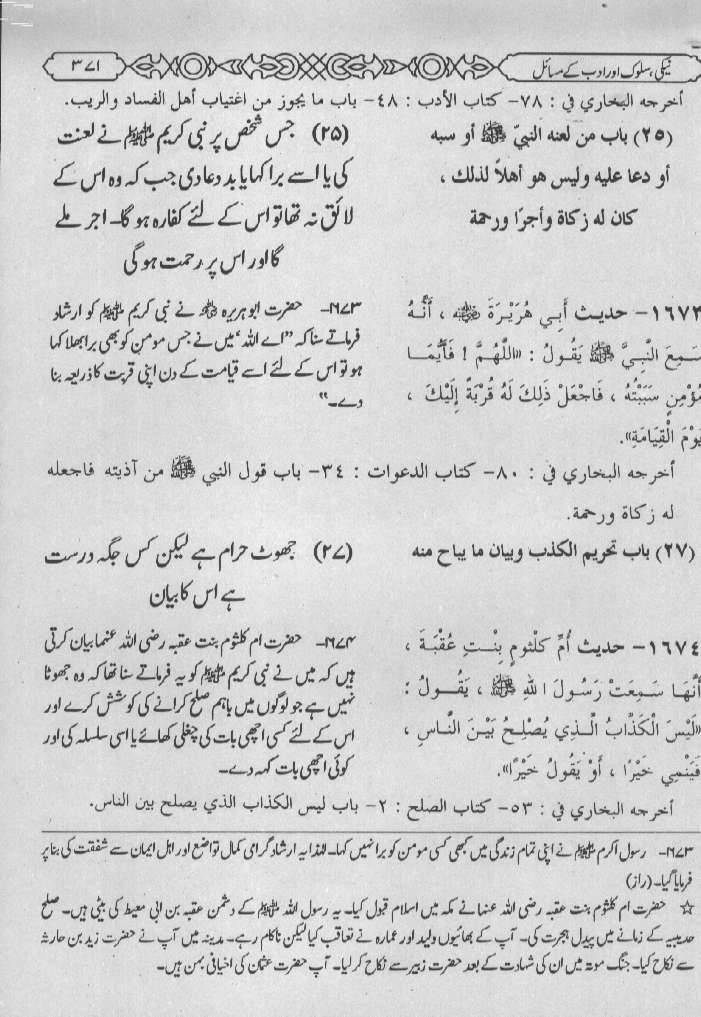 نیکی، سلوک اور ادب کے مسائل
۳۷۱
أخرجه البخاري في : ٧٨- كتاب الأدب : ٤٨- باب ما يجوز من اغتياب أهل الفساد والريب.
(٢٥) باب من لعنه النبيّ ﷺ أو سبه
أو دعا عليه وليس هو أهلاً لذلك ،
كان له زكاة وأجرًا ورحمة
(۲۵) جس شخص پر نبی کریم ﷺ نے لعنت
کی یا اسے برا کہا یا بددعا دی جب کہ وہ اس کے
لائق نہ تھا تو اس کے لئے کفارہ ہو گا۔ اجر ملے
گا اور اس پر رحمت ہو گی
١٦٧٣- حديث أَبِي هُرَيْرَةَ ﷺ ، أَنَّهُ
سَمِعَ النَّبِيَّ ﷺ يَقُولُ : «اللَّهُمَّ ! فَأَيُّمَا
مُؤْمِنٍ سَبَبْتُهُ ، فَاجْعَلْ ذَلِكَ لَهُ قُرْبَةً إِلَيْكَ ،
يَوْمَ الْقِيَامَةِ».
۱۶۷۳- حضرت ابو ہریرہ نے نبی کریم ﷺ کو ارشاد
فرماتے سنا کہ ”اے اللہ‘ میں نے جس مومن کو بھی برا بھلا کہا
ہو تو اس کے لئے اسے قیامت کے دن اپنی قربت کا ذریعہ بنا
دے۔“
أخرجه البخاري في : ٨٠- كتاب الدعوات : ٣٤- باب قول النبي ﷺ من آذيته فاجعله
له زكاة ورحمة.
(٢٧) باب تحريم الكذب وبيان ما يباح منه
(۲۷) جھوٹ حرام ہے لیکن کس جگہ درست
ہے اس کا بیان
١٦٧٤- حديث أُمِّ كلْثومٍ بِنْتِ عُقْبَةَ ،
أَنَّهَا سَمِعَتْ رَسُولَ اللهِ ﷺ ، يَقُولُ :
«لَيْسَ الْكَذَّابُ الَّذِي يُصْلِحُ بَيْنَ النَّاسِ ،
فَيَنْمِي خَيْرًا ، أَوْ يَقُولُ خَيْرًا».
۱۶۷۴- حضرت ام کلثوم بنت عقبہ رضی اللہ عنہما بیان کرتی
ہیں کہ میں نے نبی کریم ﷺ کو یہ فرماتے سنا تھا کہ وہ جھوٹا
نہیں ہے جو لوگوں میں باہم صلح کرانے کی کوشش کرے اور
اس کے لئے کسی اچھی بات کی چغلی کھائے یا اسی سلسلہ کی اور
کوئی اچھی بات کہہ دے۔
أخرجه البخاري في : ٥٣- كتاب الصلح : ٢- باب ليس الكذاب الذي يصلح بين الناس.
۱۶۷۳- رسول اکرم ﷺ نے اپنی تمام زندگی میں کبھی کسی مومن کو برا نہیں کہا۔ لہٰذا یہ ارشاد گرامی کمال تواضع اور اہل ایمان سے شفقت کی بنا پر
فرمایا گیا۔ (راز)
☆ حضرت ام کلثوم بنت عقبہ رضی اللہ عنہا نے مکہ میں اسلام قبول کیا۔ یہ رسول اللہ ﷺ کے دشمن عقبہ بن ابی معیط کی بیٹی ہیں۔ صلح
حدیبیہ کے زمانے میں پیدل ہجرت کی۔ آپ کے بھائیوں ولید اور عمارہ نے تعاقب کیا لیکن ناکام رہے۔ مدینہ میں آپ نے حضرت زید بن حارثہ
سے نکاح کیا۔ جنگ موتہ میں ان کی شہادت کے بعد حضرت زبیر سے نکاح کر لیا۔ آپ حضرت عثمان کی اخیافی بہن ہیں۔